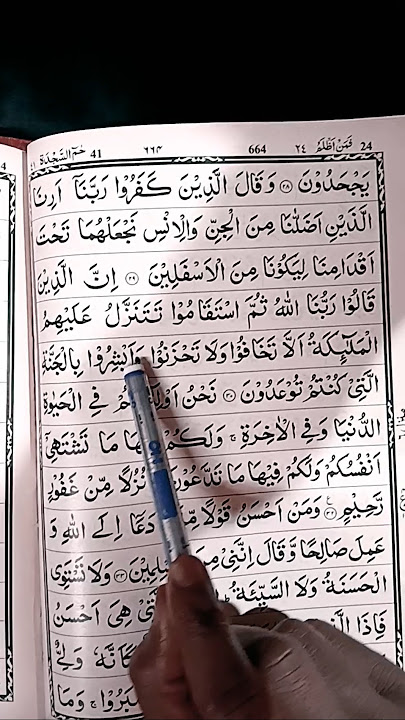 حٰمٓ السَّجْدَة 41 ٦٦٤ 664 فَمَنْ اَظْلَمُ ٢٤ 24
يَجْحَدُوْنَ ﴿۲۸﴾ وَ قَالَ الَّذِيْنَ كَفَرُوْا رَبَّنَاۤ اَرِنَا
الَّذَيْنِ اَضَلّٰنَا مِنَ الْجِنِّ وَالْاِنْسِ نَجْعَلْهُمَا تَحْتَ
اَقْدَامِنَا لِيَكُوْنَا مِنَ الْاَسْفَلِيْنَ ﴿۲۹﴾ اِنَّ الَّذِيْنَ
قَالُوْا رَبُّنَا اللّٰهُ ثُمَّ اسْتَقَامُوْا تَتَنَزَّلُ عَلَيْهِمُ
الْمَلٰٓئِكَةُ اَلَّا تَخَافُوْا وَلَا تَحْزَنُوْا وَاَبْشِرُوْا بِالْجَنَّةِ
الَّتِيْ كُنْتُمْ تُوْعَدُوْنَ ﴿۳۰﴾ نَحْنُ فِي الْحَيٰوةِ
الدُّنْيَا وَفِي الْاٰخِرَةِ ۚ وَلَكُمْ مَا تَشْتَهِيْۤ
اَنْفُسُكُمْ وَلَكُمْ فِيْهَا مَا تَدَّعُوْنَ نُزُلًا مِّنْ غَفُوْرٍ
رَّحِيْمٍ ﴿۳۲﴾ وَمَنْ اَحْسَنُ قَوْلًا دَعَاۤ اِلَى اللّٰهِ وَ
عَمِلَ صَالِحًا وَّقَالَ اِنَّنِيْ مِنَ ﴿۳۳﴾ وَلَا تَسْتَوِي
الْحَسَنَةُ وَلَا السَّيِّئَةُ ؕ هِيَ اَحْسَنُ
فَاِذَا
كَاَنَّهٗ وَلِيٌّ
وَمَا